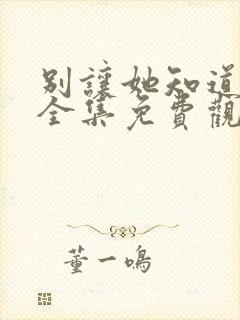 別讓她知道
全集免費觀
董一鳴